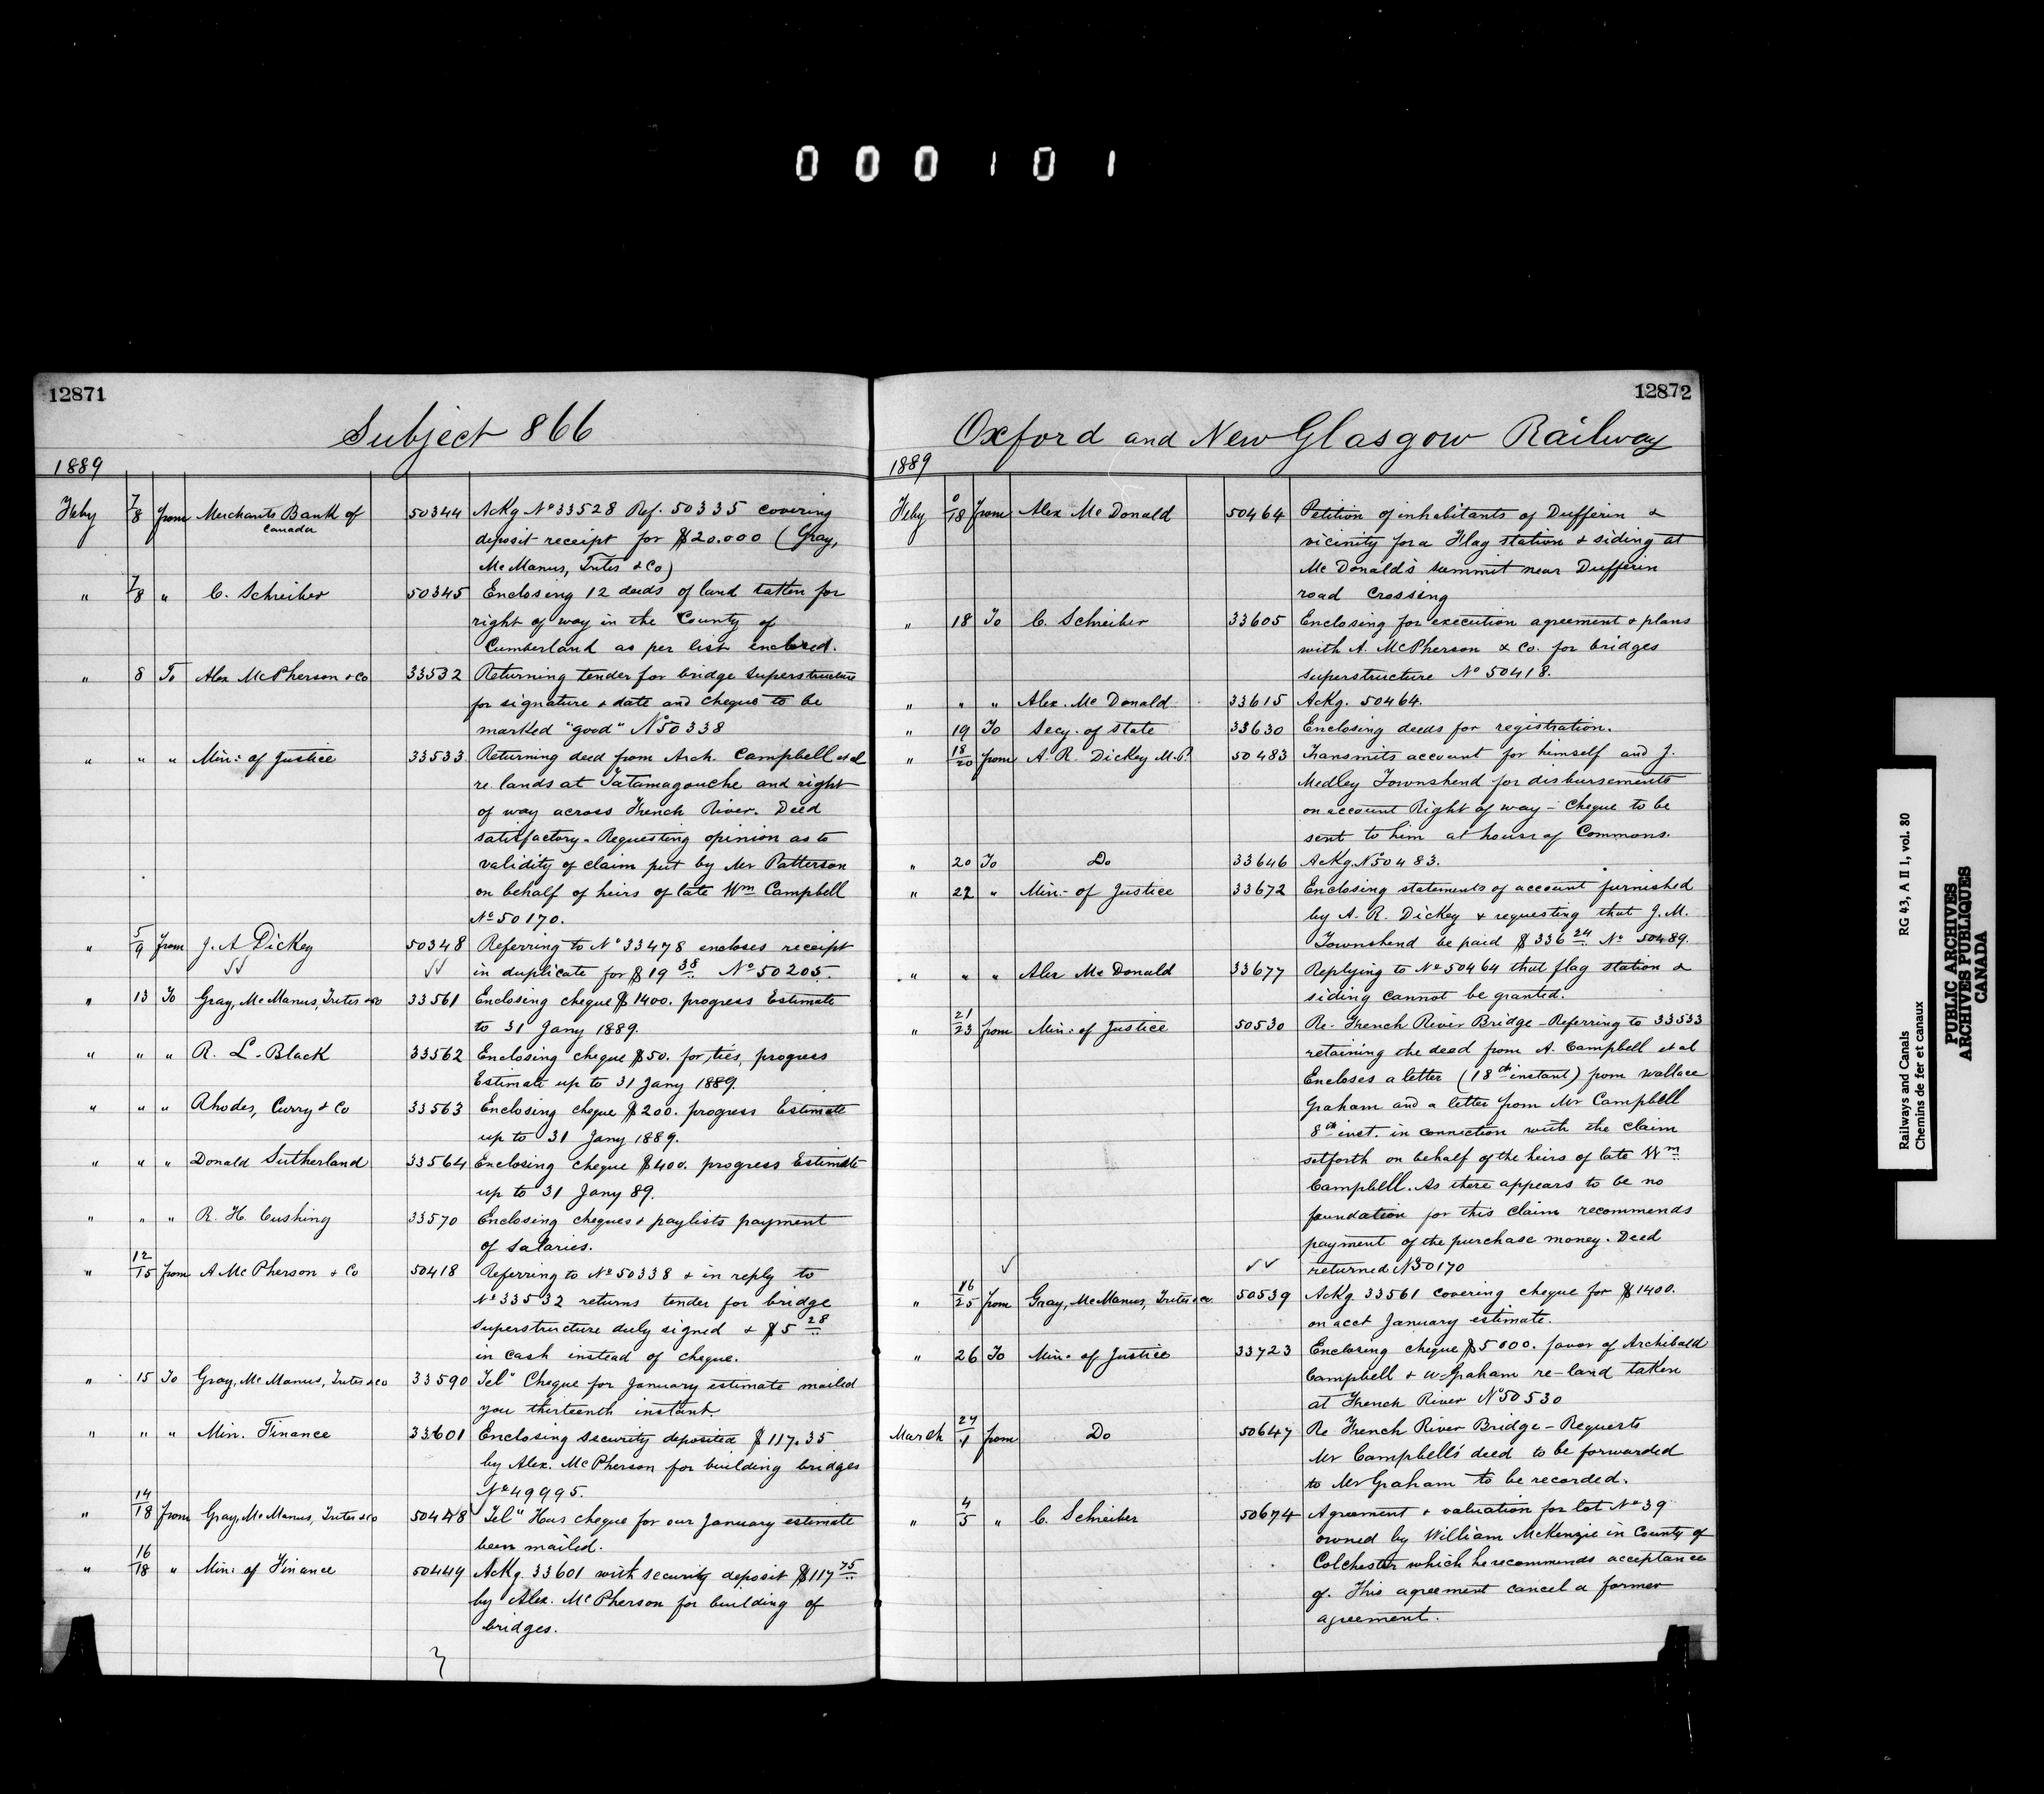 000101
12871
Subject 866
1889
Feby 7/8 from Merchants Bank of Canada 50344 Ackg No 33528 Ref. 50335 covering
deposit receipt for $20.000 (Gray,
McManus, Tutes & Co)
" 7/8 " C. Schreiber 50345 Enclosing 12 deeds of land taken for
right of way in the County of
Cumberland as per list enclosed.
" 8 To Alex McPherson & Co 33532 Returning tender for bridge superstructure
for signature & date and cheque to be
marked "good" No 50338
" " " Min: of Justice 33533 Returning deed from Arch. Campbell et al
re. lands at Tatamagouche and right
of way across French River. Deed
satisfactory - Requesting opinion as to
validity of claim put by Mr Patterson
on behalf of heirs of late Wm Campbell
No 50170.
" 5/9 from J. A Dickey 50348 Referring to No 33478 encloses receipt
in duplicate for $19 38 No 50205.
" 13 To Gray, McManus, Tutes & Co 33561 Enclosing cheque $1400. progress Estimate
to 31 Jany 1889.
" " " R. L. Black 33562 Enclosing cheque $50. for ties, progress
Estimate up to 31 Jany 1889.
" " " Rhodes, Curry & Co 33563 Enclosing cheque $200. progress Estimate
up to 31 Jany 1889.
" " " Donald Sutherland 33564 Enclosing cheque $400. progress Estimate
up to 31 Jany 89.
" " " R. H. Cushing 33570 Enclosing cheques & paylists payment
of salaries.
" 12/15 from A McPherson & Co 50418 Referring to No 50338 & in reply to
No 33532 returns tender for bridge
superstructure duly signed & $5 28
in cash instead of cheque.
" 15 To Gray, McManus, Tutes & Co 33590 Tel" Cheque for January estimate mailed
you thirteenth instant.
" " " Min. Finance 33601 Enclosing security deposited $117.35
by Alex. McPherson for building bridges
No 49995.
" 14/18 from Gray, McManus, Tutes & Co 50448 Tel" Has cheque for our January estimate
been mailed.
" 16/18 " Min: of Finance 50449 Ackg. 33601 with security deposit $117 75
by Alex. McPherson for building of
bridges.
12872
Oxford and New Glasgow Railway
1889
Feby 0/18 from Alex McDonald 50464 Petition of inhabitants of Dufferin &
vicinity for a Flag station & siding at
McDonald's summit near Dufferin
road crossing
" 18 To C. Schreiber 33605 Enclosing for execution agreement & plans
with A. McPherson & Co. for bridges
superstructure No 50418.
" " " Alex. McDonald 33615 Ackg. 50464.
" 19 To Secy. of State 33630 Enclosing deeds for registration.
" 18/20 from A. R. Dickey M.P. 50483 Transmits account for himself and J.
Medley Townshend for disbursements
on account Right of way - Cheque to be
sent to him at house of Commons.
" 20 To Do 33646 Ackg. No 50483.
" 22 " Min: of Justice 33672 Enclosing statements of account furnished
by A. R. Dickey & requesting that J. M.
Townshend be paid $336 24 No 50489.
" " " Alex McDonald 33677 Replying to No 50464 that flag station &
siding cannot be granted.
" 21/23 from Min: of Justice 50530 Re. French River Bridge - Referring to 33533
retaining the deed from A. Campbell et al
Encloses a letter (18th instant) from Wallace
Graham and a letter from Mr Campbell
8th inst. in connection with the claim
setforth on behalf of the heirs of late Wm
Campbell. As there appears to be no
foundation for this claim recommends
payment of the purchase money. Deed
returned No 50170
" 16/25 from Gray, McManus, Tutes & Co. 50539 Ackg 33561 covering cheque for $1400.
on acct January estimate.
" 26 To Min: of Justice 33723 Enclosing cheque $5000. favor of Archibald
Campbell & W Graham re-land taken
at French River No 50530
March 27/1 from Do 50647 Re French River Bridge - Requests
Mr Campbell's deed to be forwarded
to Mr Graham to be recorded.
" 4/5 " C. Schreiber 50674 Agreement & valuation for lot No 39
owned by William McKenzie in County of
Colchester which he recommends acceptance
of. This agreement cancel a former
agreement.
Railways and Canals RG 43, A II 1, vol. 80
Chemins de fer et canaux
PUBLIC ARCHIVES
ARCHIVES PUBLIQUES
CANADA